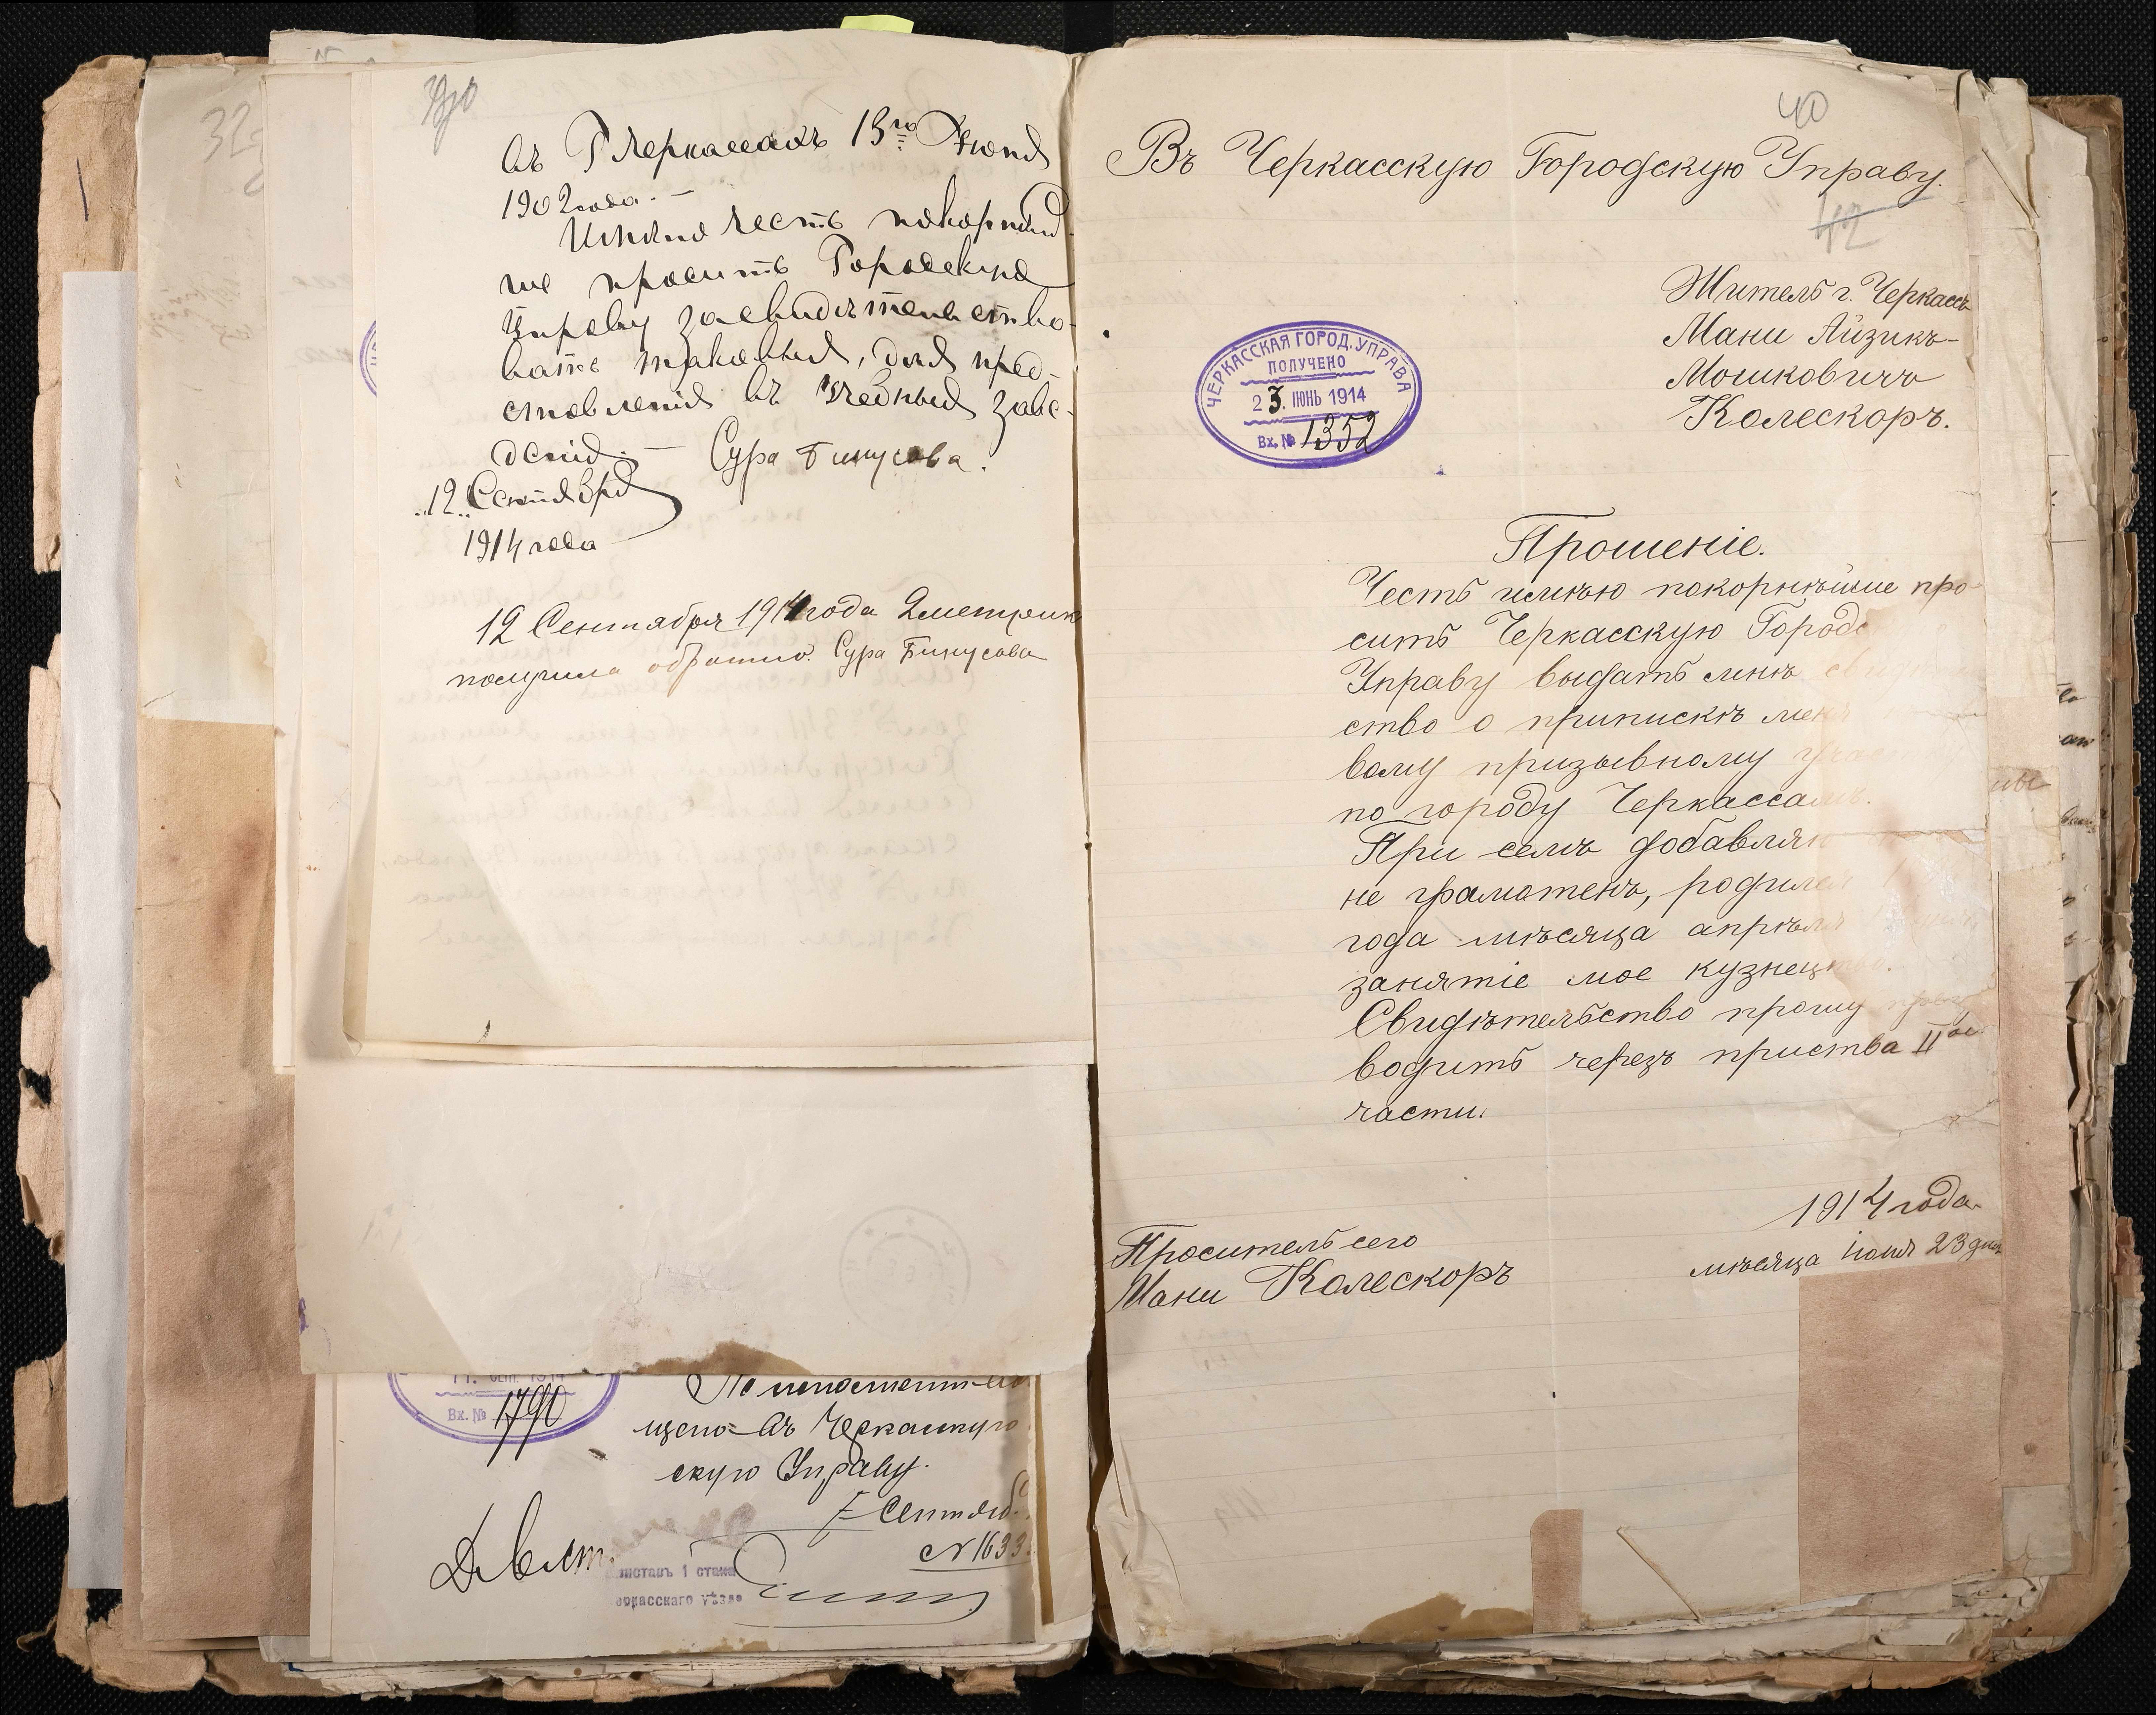 въ Г Черкассахъ 13го Іюня
1902 года. —
Имѣю честь покорнѣй-
ше просить Городскую
Управу засвидѣтельство-
вать таковыя, для пред-
ставленія въ учебныя заве-
денія. — Сура Бинусова.
"12" Сентября
1914 года
12 Сентября 1914 года 2 метрик
получила обратно Сура Бинусова
1790
Вх. №
11. СЕНТ. 1914
скую Управу.
7 Сентяб.
№ 1633
приставъ 1 стана
Черкасскаго уѣзда
40
Въ Черкасскую Городскую Управу.
42
Житель г. Черкассъ
Мани Айзикъ-
Мошковичъ
Колескоръ.
ЧЕРКАССКАЯ ГОРОД. УПРАВА
ПОЛУЧЕНО
23. ІЮНЬ 1914
Вх. № 1352
Прошеніе.
Честь имѣю покорнѣйше про-
сить Черкасскую Городс
Управу выдать мнѣ св
ство о припискѣ меня
вому призывному уча
по городу Черкассамъ.
При семъ добавляю
не грамотенъ, родился
года мѣсяца апрѣля
занятіе мое кузнец
Свидѣтельство прошу
водить черезъ приства IIой
части.
1914 года
мѣсяца іюня 23 дня
Проситель сего
Мани Колескоръ